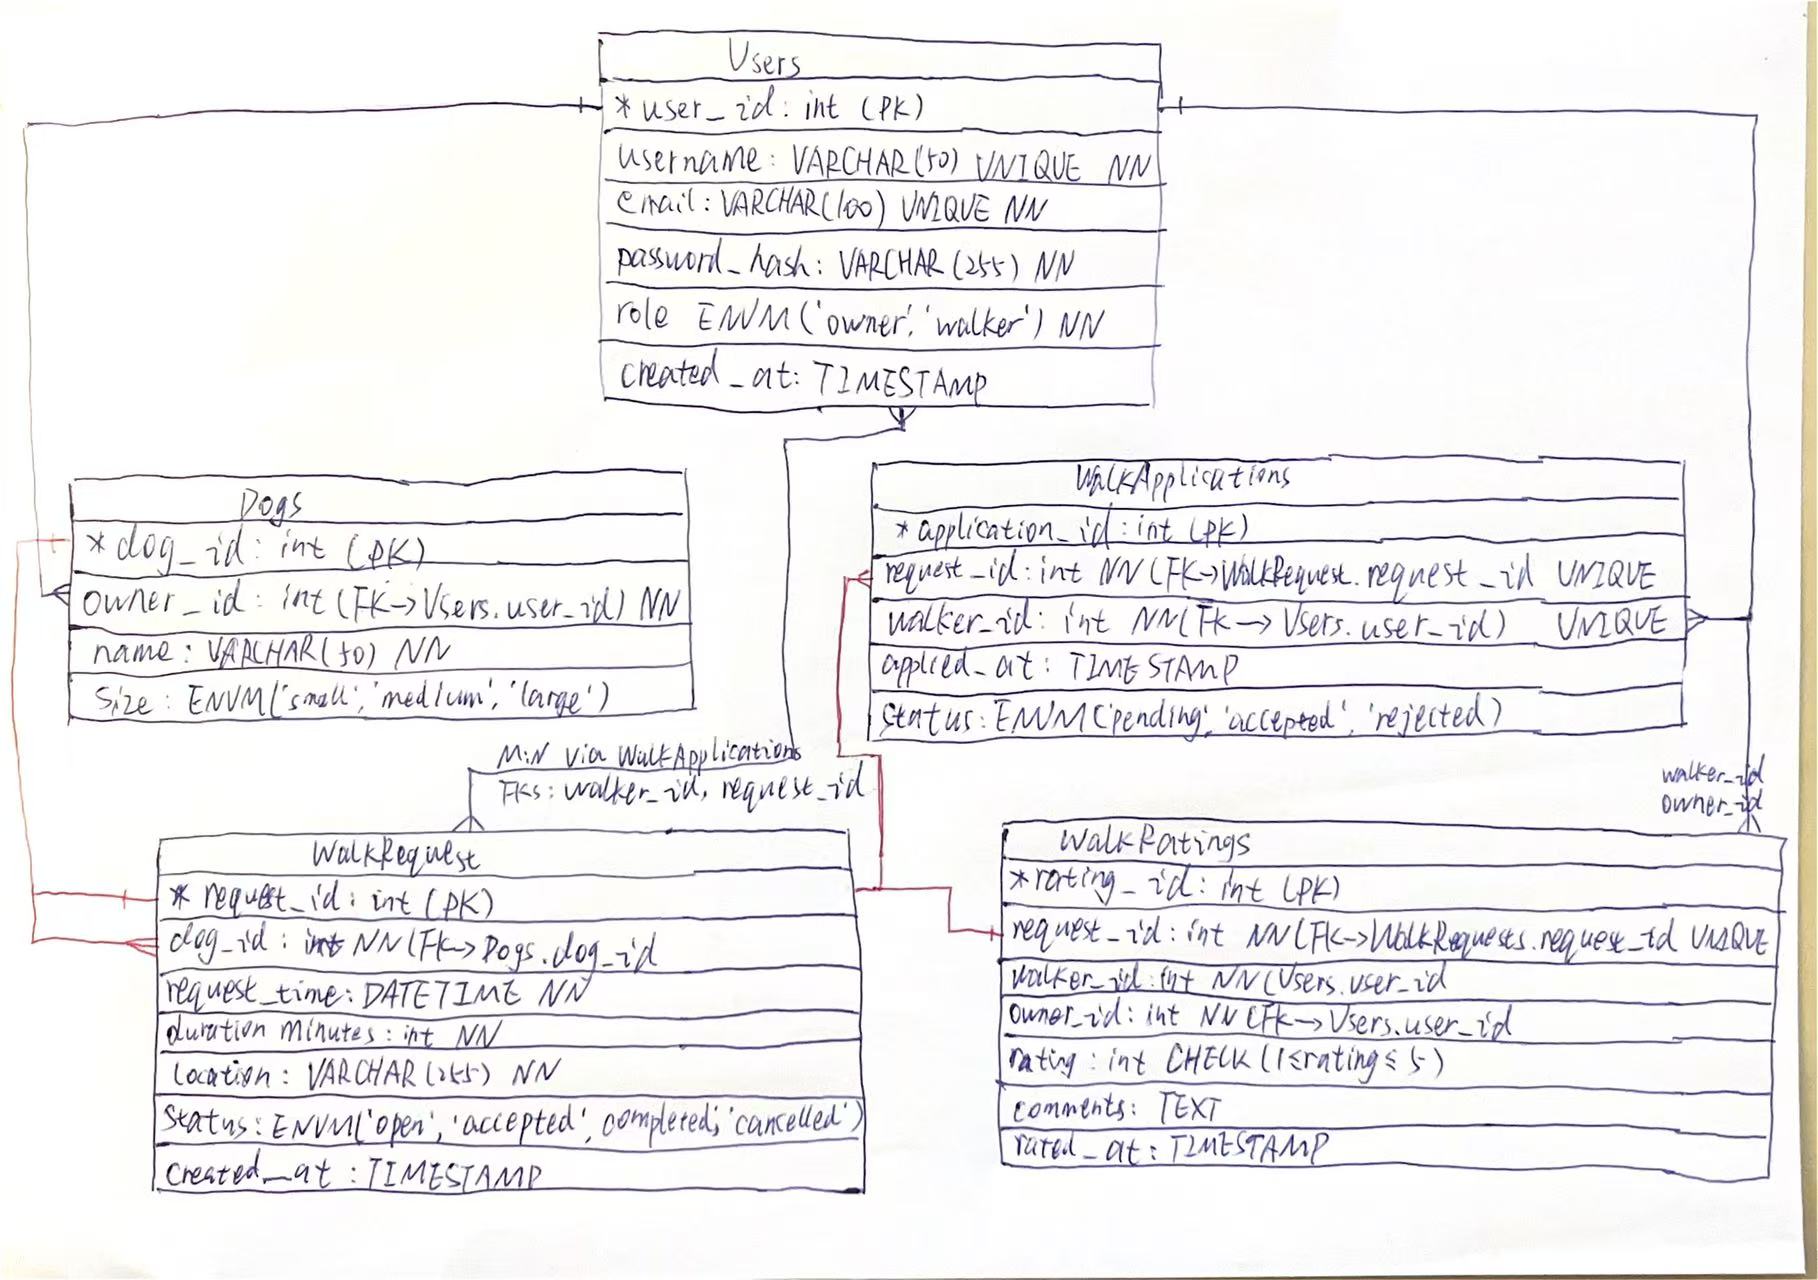 Users
* user_id: int (PK)
username: VARCHAR(50) UNIQUE NN
email: VARCHAR(100) UNIQUE NN
password_hash: VARCHAR(255) NN
role ENUM('owner', 'walker') NN
created_at: TIMESTAMP
Dogs
* dog_id: int (PK)
owner_id: int (FK→Users.user_id) NN
name: VARCHAR(50) NN
Size: ENUM('small', 'medium', 'large')
WalkApplications
* application_id: int (PK)
request_id: int NN (FK→WalkRequest.request_id UNIQUE
walker_id: int NN(FK→Users.user_id) UNIQUE
applied_at: TIMESTAMP
Status: ENUM('pending', 'accepted', 'rejected)
M:N via WalkApplications
FKs: walker_id, request_id
walker_id
owner_id
WalkRequest
* request_id: int (PK)
dog_id: int NN(FK→Dogs.dog_id
request_time: DATETIME NN
duration minutes: int NN
location: VARCHAR(255) NN
Status: ENUM('open', 'accepted', completed', 'cancelled')
Created_at: TIMESTAMP
WalkRatings
* rating_id: int (PK)
request_id: int NN(FK→WalkRequests.request_id UNIQUE
walker_id: int NN(Users.user_id
owner_id: int NN(FK→Users.user_id
rating: int CHECK(1≤rating≤5)
comments: TEXT
rated_at: TIMESTAMP